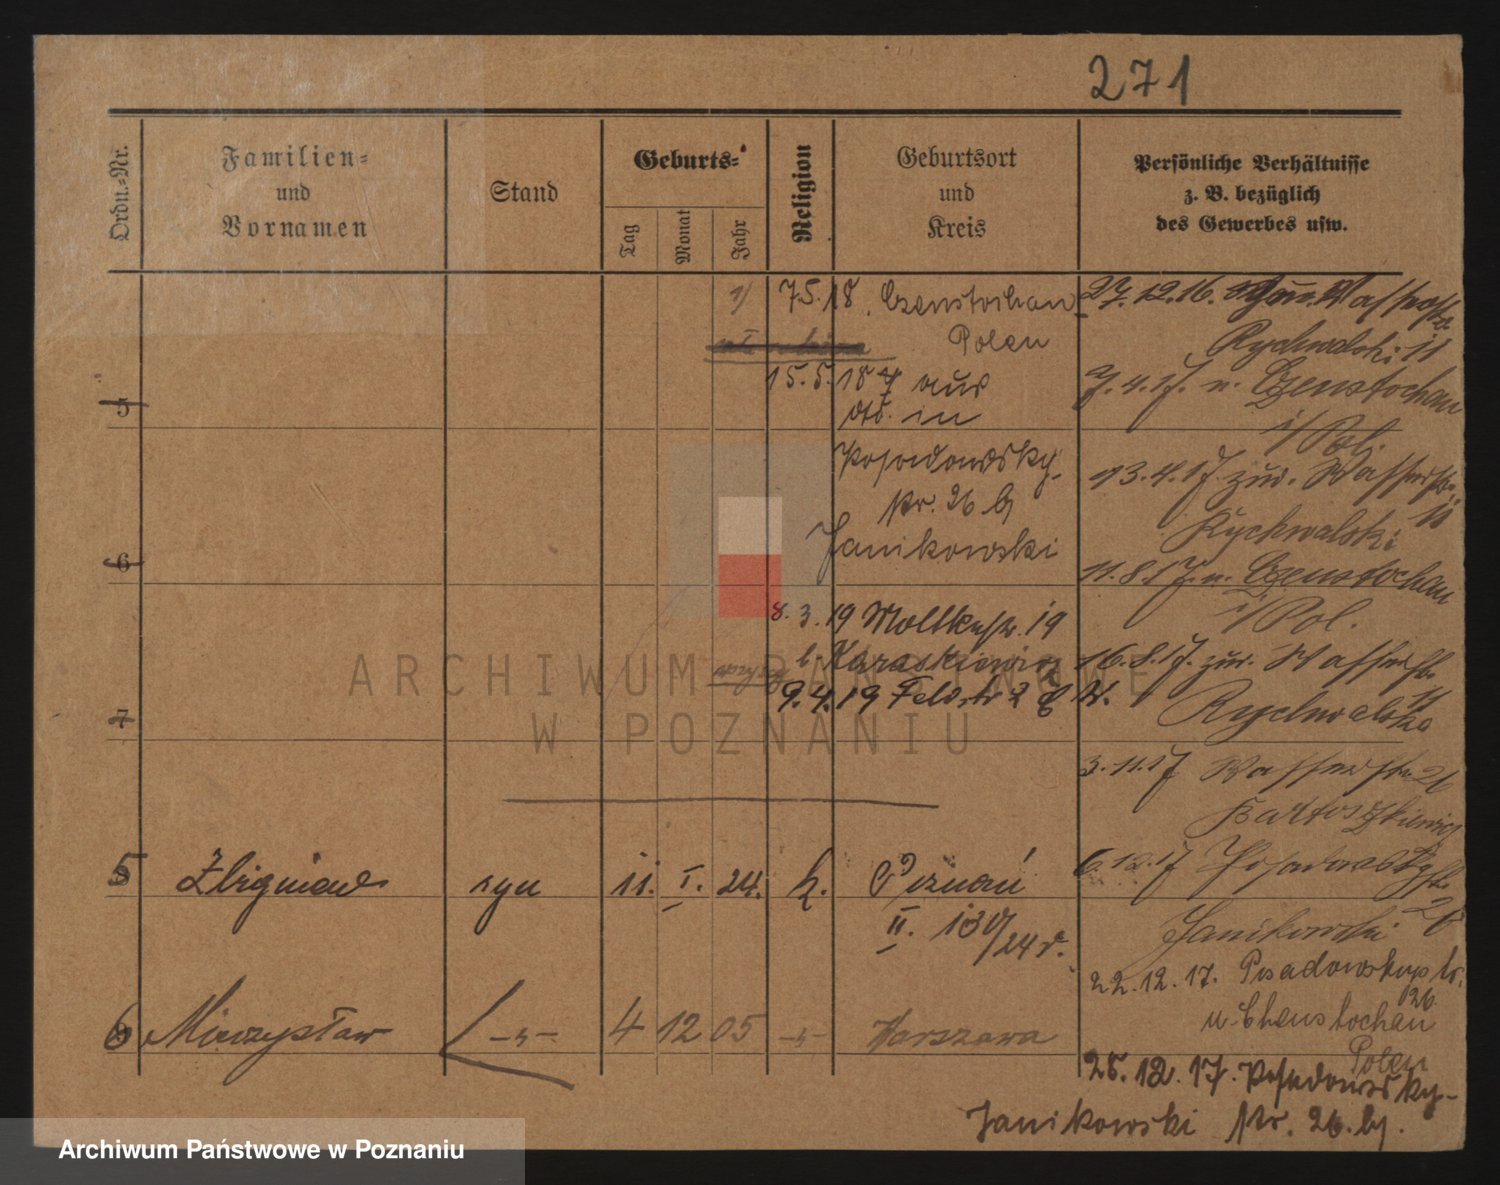 271
Ordn.=Nr.
Familien=
und
Vornamen
Stand
Geburts=
Tag
Monat
Jahr
Religion
Geburtsort
und
Kreis
Persönliche Verhältnisse
z. B. bezüglich
des Gewerbes usw.
7.5.18. Czenstochau
Polen
15.5.18 aus
in
Posadowsky-
str. 26 b/
Janikowski
8.3.19 Moltkestr. 19
b. Karaskiewicz
9.4.19 Feldstr 2 b W.
27.12.16. Wasserstr.
Rychwalski 11
7.4.17. n. Czenstochau
i/Pol.
13.4.17 zur. Wasserstr.
11
Rychwalski
11.8.17. n. Czenstochau
i/Pol.
16.8.17. zur. Wasserstr.
11
Rychwalska
3.11.17 Wasserstr. 26
Bartoszkiewicz
6.12.17 Posadowskystr.
26
Janikowski
22.12.17. Posadowskystr.
26
n. Chenstochau
Polen
28.12.17. Posadowsky-
Janikowski str. 26. b/.
5
6
7
5 Zbigniew syn 11. I. 24. k. Poznań
II. 130/24 r.
6 Mieczysław -„- 4 12 05 -„- Warszawa
ARCHIWUM PAŃSTWOWE
W POZNANIU
Archiwum Państwowe w Poznaniu